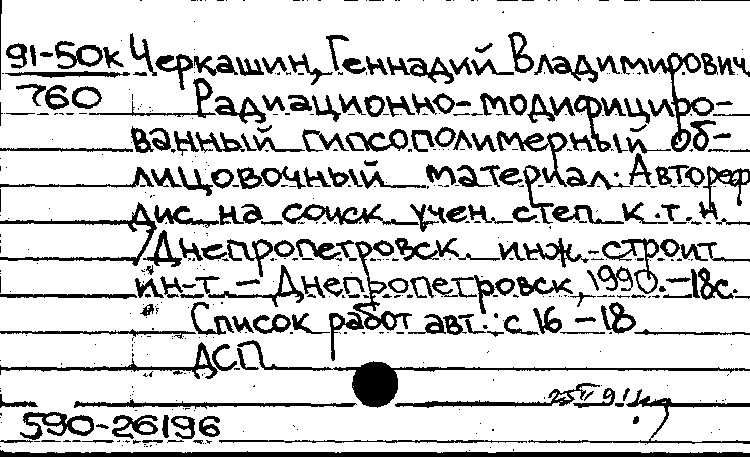 91-50к Черкашин, Геннадий Владимирович
760 Радиационно-модифициро-
ванный гипсополимерный об-
лицовочный материал: Автореф
дис. на соиск. учен. степ. к.т.н.
/Днепропетровск. инж.-строит
ин-т. – Днепропетровск, 1990. – 18с.
Список работ авт.: с 16 – 18.
ДСП.
590-26196